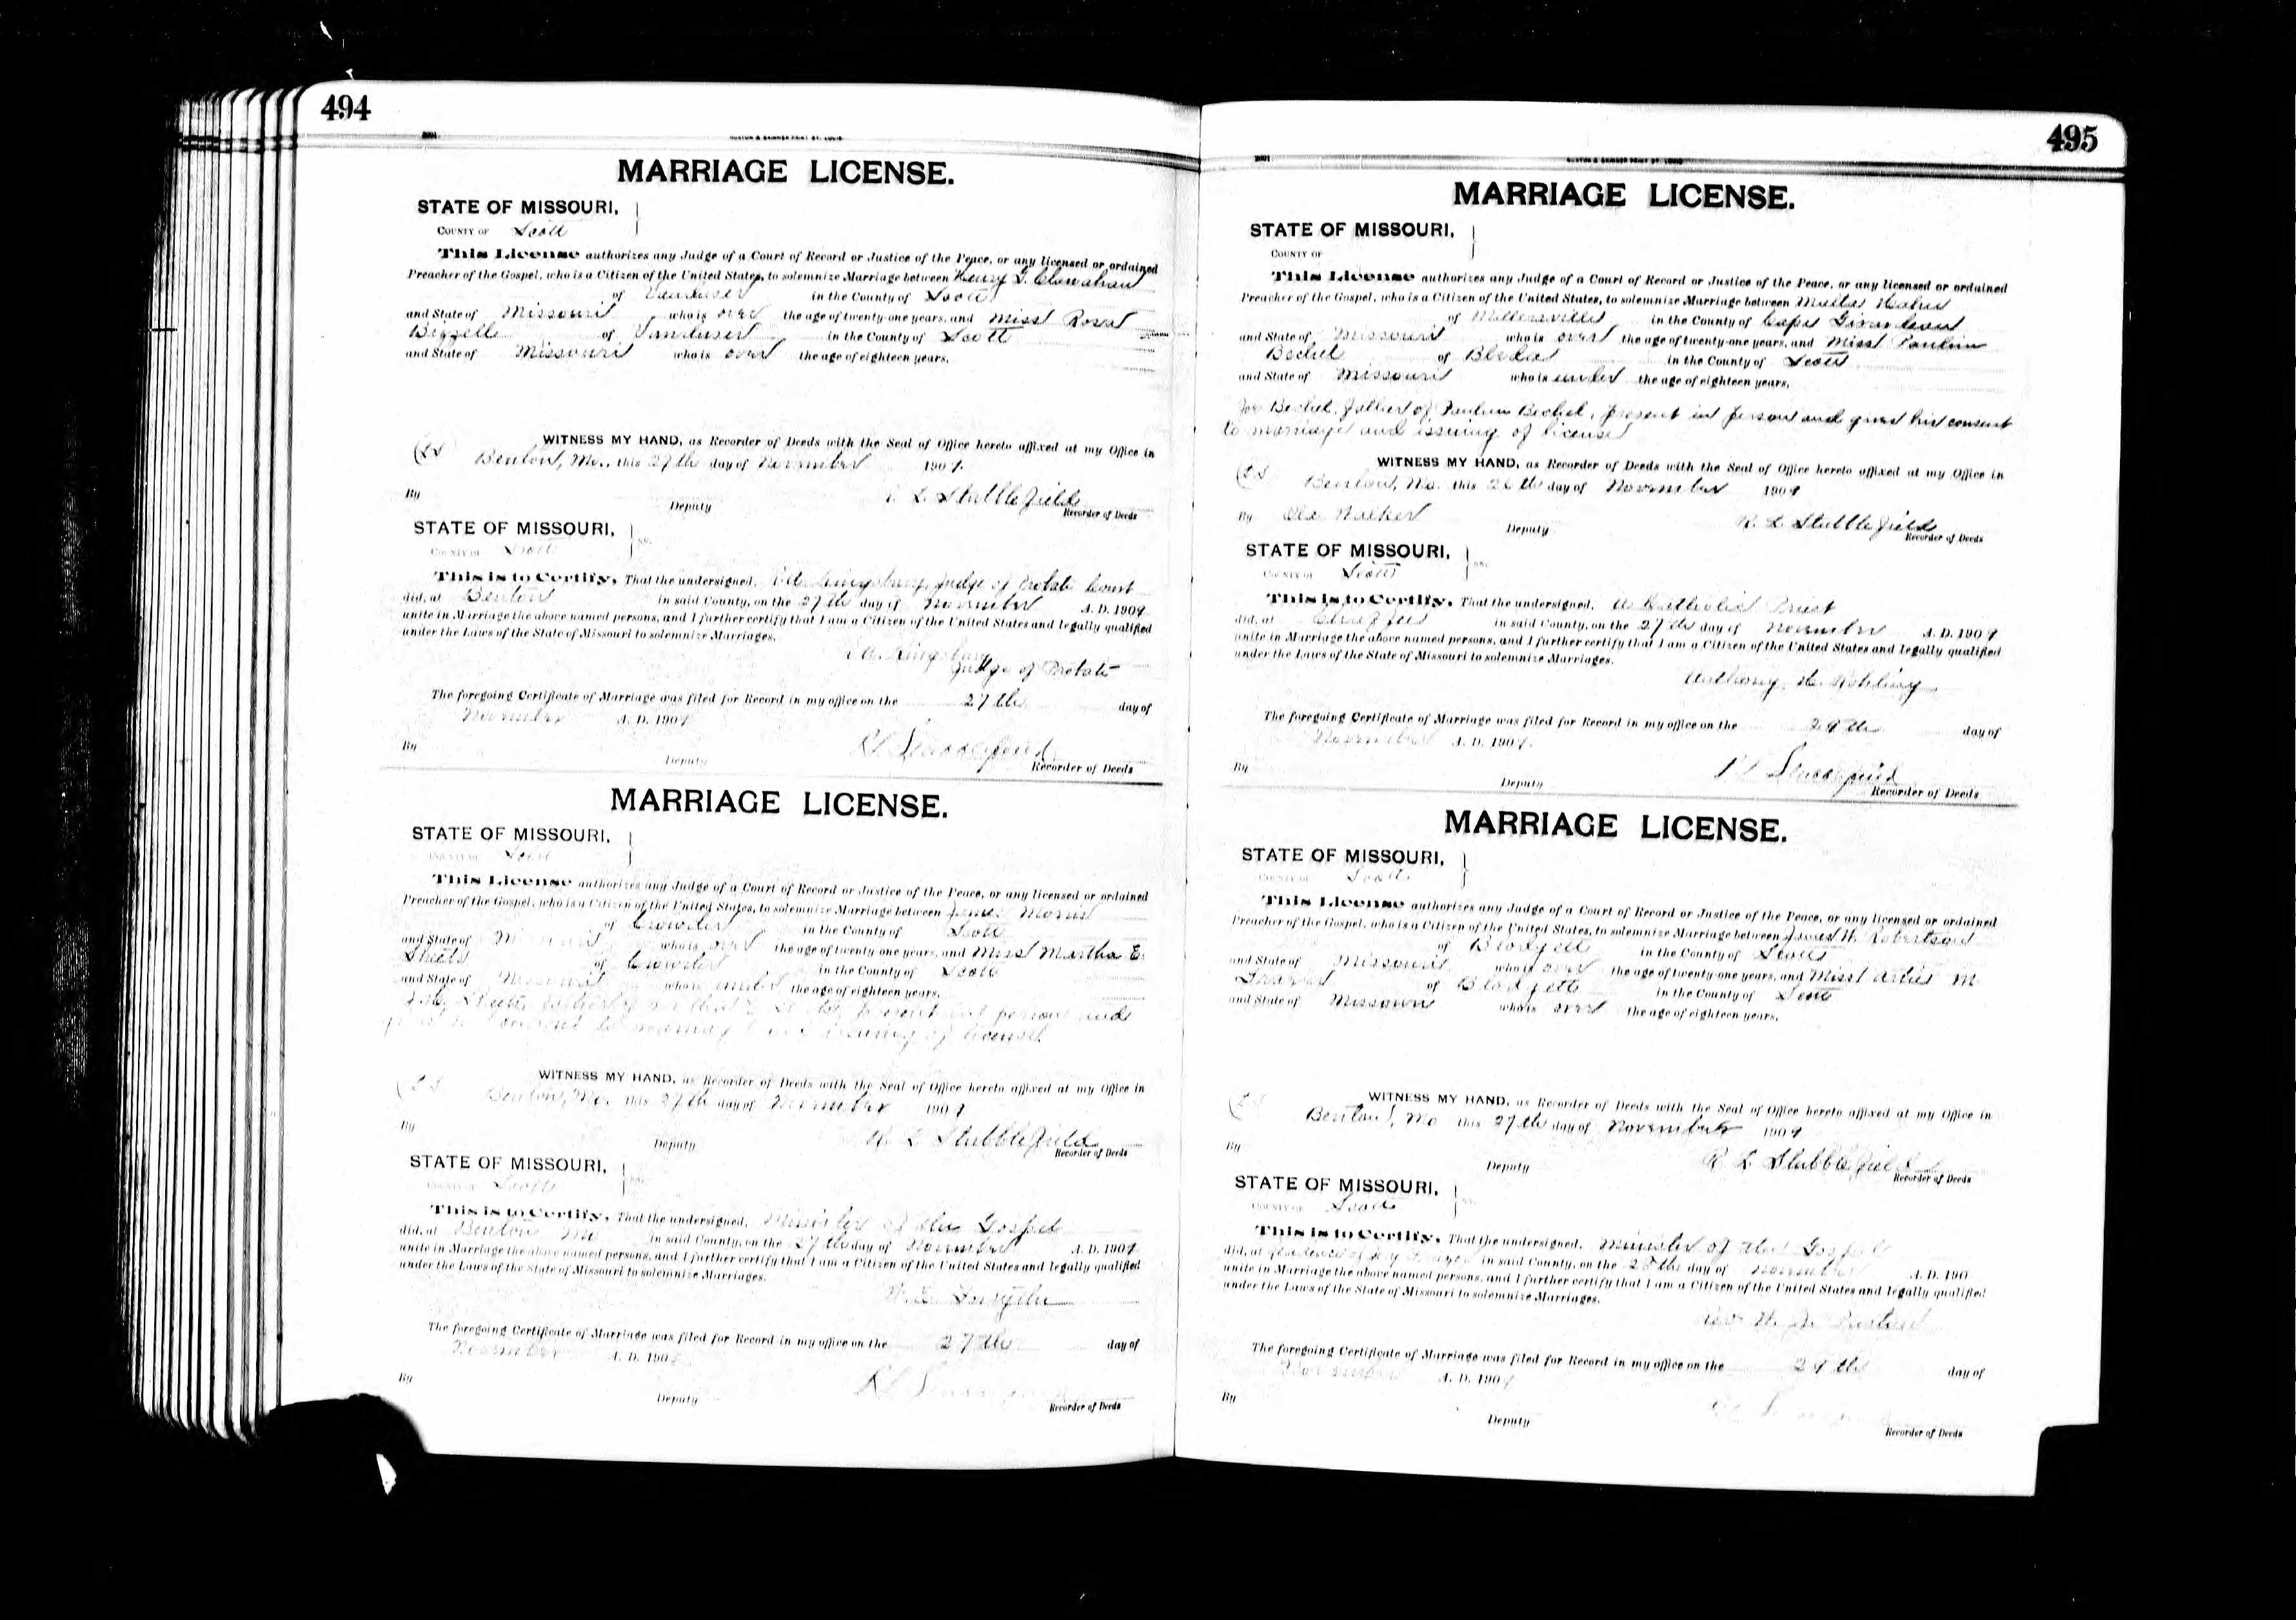 494
MARRIAGE LICENSE.
STATE OF MISSOURI,
COUNTY OF Scott
This License authorizes any Judge of a Court of Record or Justice of the Peace, or any licensed or ordained
Preacher of the Gospel, who is a Citizen of the United States, to solemnize Marriage between Henry
of Vanduser in the County of Scott
and State of Missouri who is over the age of twenty-one years, and Miss Rosa
Bizzelle of Vanduser in the County of Scott
and State of Missouri who is over the age of eighteen years.
WITNESS MY HAND, as Recorder of Deeds with the Seal of Office hereto affixed at my Office in
Benton, Mo., this 27th day of November 1909.
By Deputy R L Stubblefield
Recorder of Deeds
STATE OF MISSOURI, ss.
COUNTY OF Scott
This is to Certify, That the undersigned, Judge of Probate Court
did, at Benton in said County, on the 27th day of November A. D. 1909
unite in Marriage the above named persons, and I further certify that I am a Citizen of the United States and legally qualified
under the Laws of the State of Missouri to solemnize Marriages.
Kingsbury
Judge of Probate
The foregoing Certificate of Marriage was filed for Record in my office on the 27th day of
November A. D. 1909
By Deputy R L Stubblefield
Recorder of Deeds
MARRIAGE LICENSE.
STATE OF MISSOURI,
COUNTY OF Scott
This License authorizes any Judge of a Court of Record or Justice of the Peace, or any licensed or ordained
Preacher of the Gospel, who is a Citizen of the United States, to solemnize Marriage between James Morris
of Crowder in the County of Scott
and State of Missouri who is over the age of twenty-one years, and Miss Martha E.
Sheets of Crowder in the County of Scott
and State of Missouri who is under the age of eighteen years.
present in person and
consent to marriage and issuing of license.
WITNESS MY HAND, as Recorder of Deeds with the Seal of Office hereto affixed at my Office in
Benton, Mo. this 27th day of November 1909
By Deputy R L Stubblefield
Recorder of Deeds
STATE OF MISSOURI, ss.
COUNTY OF Scott
This is to Certify, That the undersigned, Minister of the Gospel
did, at Benton Mo in said County, on the 27th day of November A. D. 1909
unite in Marriage the above named persons, and I further certify that I am a Citizen of the United States and legally qualified
under the Laws of the State of Missouri to solemnize Marriages.
The foregoing Certificate of Marriage was filed for Record in my office on the 27th day of
November A. D. 190
By Deputy
Recorder of Deeds
495
MARRIAGE LICENSE.
STATE OF MISSOURI,
COUNTY OF
This License authorizes any Judge of a Court of Record or Justice of the Peace, or any licensed or ordained
Preacher of the Gospel, who is a Citizen of the United States, to solemnize Marriage between
of Millersville in the County of Cape Girardeau
and State of Missouri who is over the age of twenty-one years, and Miss Paulin
Bechel of in the County of Scott
and State of Missouri who is under the age of eighteen years.
Joe Bechel, father of Paulin Bechel, present in person and gives his consent
to marriage and issuing of license
WITNESS MY HAND, as Recorder of Deeds with the Seal of Office hereto affixed at my Office in
Benton, Mo. this 26th day of November 1909
By Walker Deputy R. L Stubblefield
Recorder of Deeds
STATE OF MISSOURI, ss.
COUNTY OF Scott
This is to Certify, That the undersigned, a Catholic Priest
did, at in said County, on the 27th day of November A. D. 1909
unite in Marriage the above named persons, and I further certify that I am a Citizen of the United States and legally qualified
under the Laws of the State of Missouri to solemnize Marriages.
Anthony H. Rohling
The foregoing Certificate of Marriage was filed for Record in my office on the 29th day of
November A. D. 1909.
By Deputy R L Stubblefield
Recorder of Deeds
MARRIAGE LICENSE.
STATE OF MISSOURI,
COUNTY OF Scott
This License authorizes any Judge of a Court of Record or Justice of the Peace, or any licensed or ordained
Preacher of the Gospel, who is a Citizen of the United States, to solemnize Marriage between James H. Robertson
of Blodgett in the County of Scott
and State of Missouri who is over the age of twenty-one years, and Miss Artie M
of Blodgett in the County of Scott
and State of Missouri who is over the age of eighteen years.
WITNESS MY HAND, as Recorder of Deeds with the Seal of Office hereto affixed at my Office in
Benton, Mo this 27th day of November 1909
By Deputy R L Stubblefield
Recorder of Deeds
STATE OF MISSOURI, ss.
COUNTY OF Scott
This is to Certify, That the undersigned, Minister of the Gospel
did, at residence of in said County, on the 28th day of November A. D. 190
unite in Marriage the above named persons, and I further certify that I am a Citizen of the United States and legally qualified
under the Laws of the State of Missouri to solemnize Marriages.
Rev.
The foregoing Certificate of Marriage was filed for Record in my office on the 29th day of
November A. D. 190
By Deputy
Recorder of Deeds